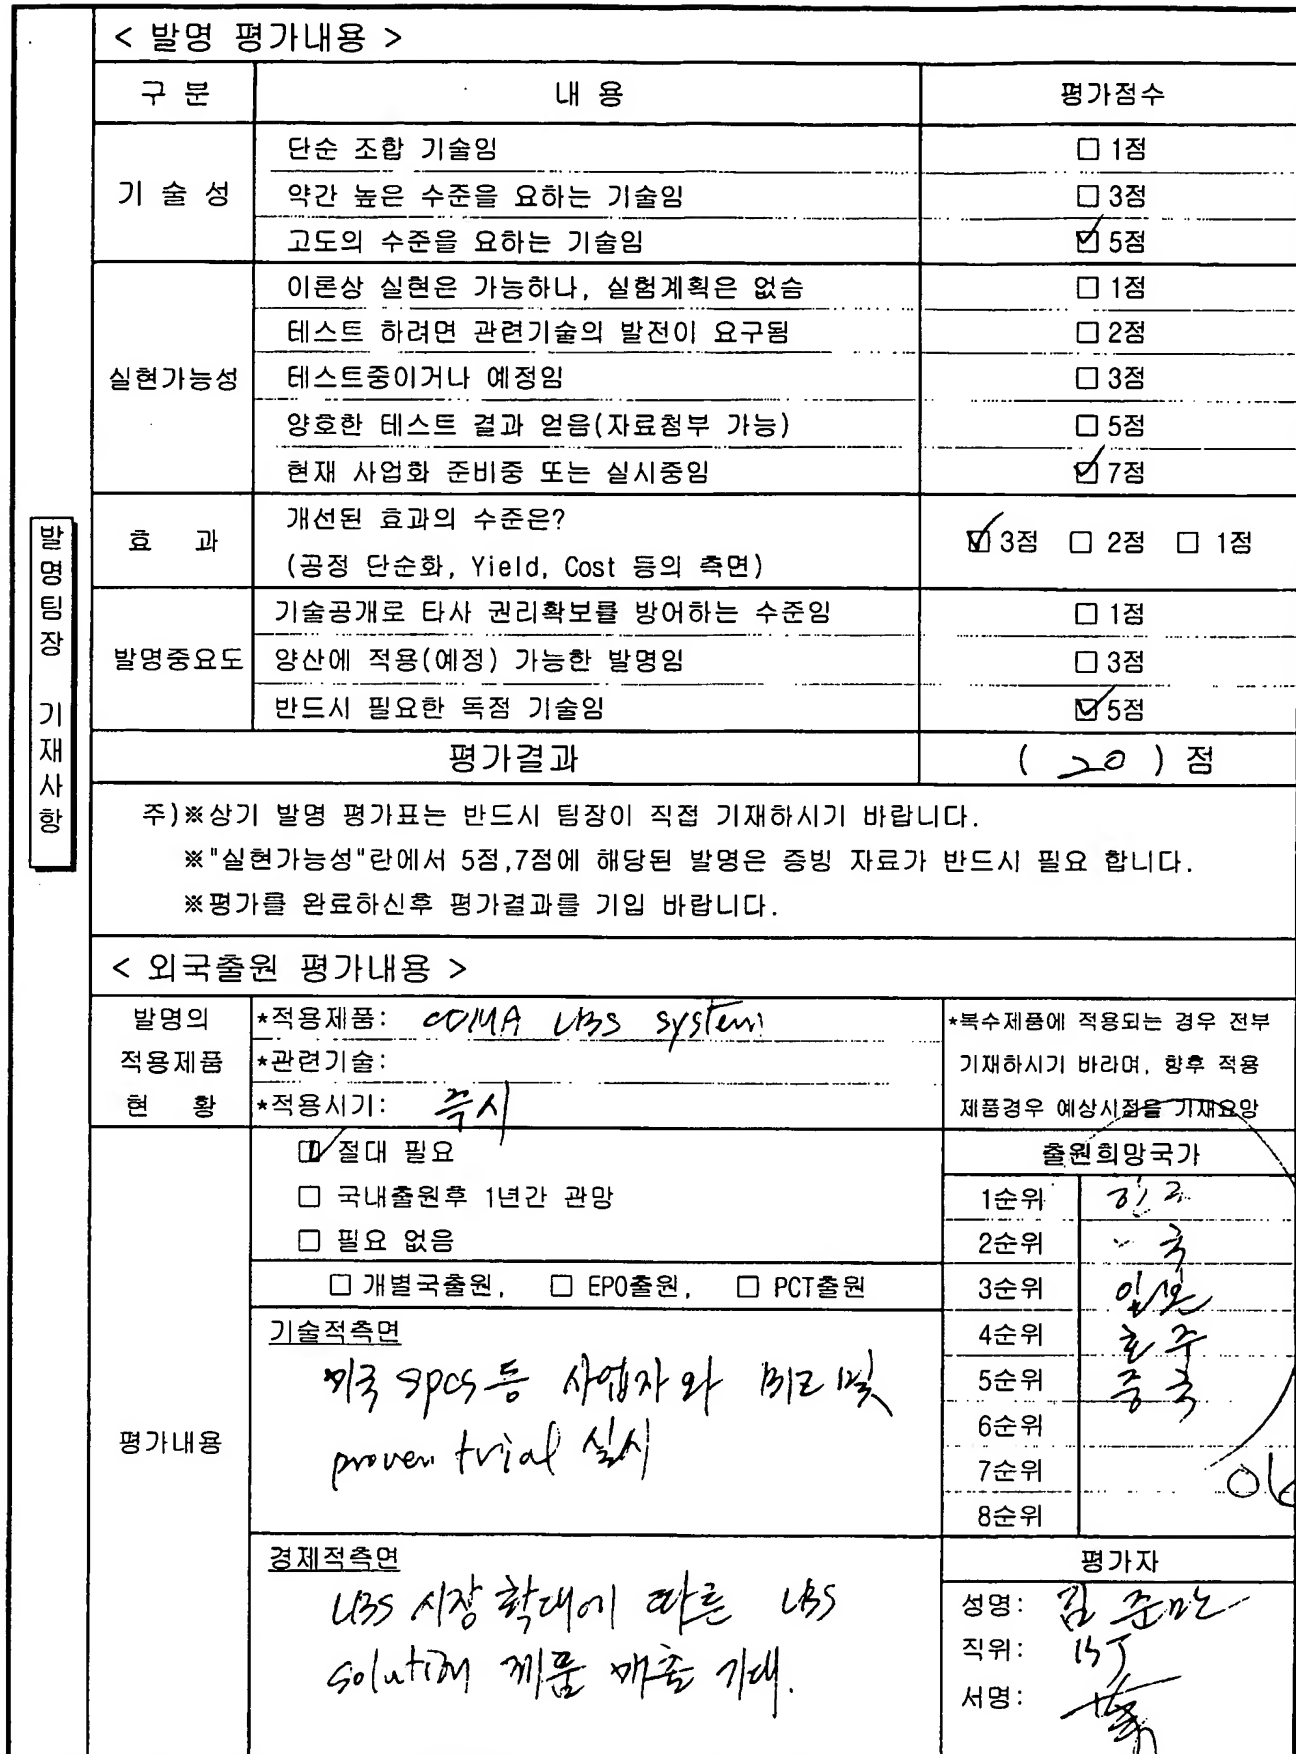 < 발명 평가내용 >
구 분 내 용 평가점수
기 술 성
단순 조합 기술임 □ 1점
약간 높은 수준을 요하는 기술임 □ 3점
고도의 수준을 요하는 기술임 ☑ 5점
실현가능성
이론상 실현은 가능하나, 실험계획은 없슴 □ 1점
테스트 하려면 관련기술의 발전이 요구됨 □ 2점
테스트중이거나 예정임 □ 3점
양호한 테스트 결과 얻음(자료첨부 가능) □ 5점
현재 사업화 준비중 또는 실시중임 ☑ 7점
효 과
개선된 효과의 수준은?
(공정 단순화, Yield, Cost 등의 측면)
☑ 3점 □ 2점 □ 1점
발명중요도
기술공개로 타사 권리확보를 방어하는 수준임 □ 1점
양산에 적용(예정) 가능한 발명임 □ 3점
반드시 필요한 독점 기술임 ☑ 5점
평가결과 ( 20 ) 점
발명팀장 기재사항
주)※상기 발명 평가표는 반드시 팀장이 직접 기재하시기 바랍니다.
※"실현가능성"란에서 5점,7점에 해당된 발명은 증빙 자료가 반드시 필요 합니다.
※평가를 완료하신후 평가결과를 기입 바랍니다.
< 외국출원 평가내용 >
발명의
적용제품
현 황
*적용제품: CDMA LBS system
*관련기술:
*적용시기: 즉시
*복수제품에 적용되는 경우 전부
기재하시기 바라며, 향후 적용
제품경우 예상시점을 기재요망
평가내용
☑ 절대 필요
□ 국내출원후 1년간 관망
□ 필요 없음
□ 개별국출원, □ EPO출원, □ PCT출원
기술적측면
미국 spcs 등 사업자와 BIZ 및
proven trial 실시
경제적측면
LBS 시장 확대에 따른 LBS
solution 제품 매출 기대.
출원희망국가
1순위
2순위
3순위 일본
4순위 호주
5순위 중국
6순위
7순위
8순위
평가자
성명: 김준만
직위:
서명: